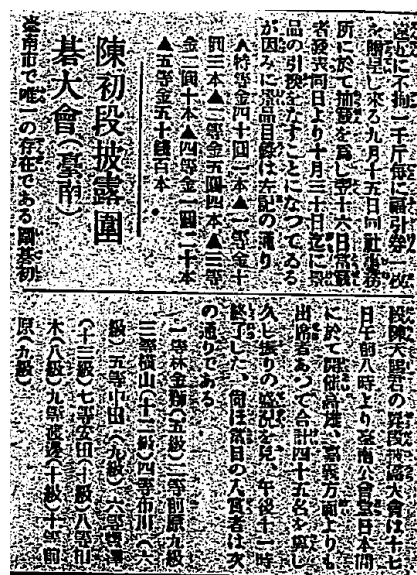 遠近に不拘一千斤每に福引券一枚
を贈呈し來る九月十五日同社事務
所に於て抽籤を爲し翌十六日當籤
者發表同日より十月三十日迄に景
品の引換をなすことになつてゐる
が因みに景品目録は左記の通り
▲特等金四十圓一本▲一等金十
圓三本▲二等金五圓四本▲三等
金二圓十本▲四等金一圓二十本
▲五等金五十錢百本
陳初段披露圍
碁大會（臺南）
臺南市で唯一の存在である圍碁初
段陳天錫君の昇段披露大會は十七
日午前八時より臺南公會堂日本間
に於て開催高雄、嘉義方面よりも
出席者あつて合計四十五名を算し
久し振りの盛況を見、午後十一時
終了した、尙ほ當日の入賞者は次
の通りである
一等林金鞠（五級）二等前原九級
三等橫山（十二級）四等布川（六
級）五等中田（九級）六等
（十三級）七等安田（十級）八等田
木（八級）九等渡邊（十級）十等前
原（九級）